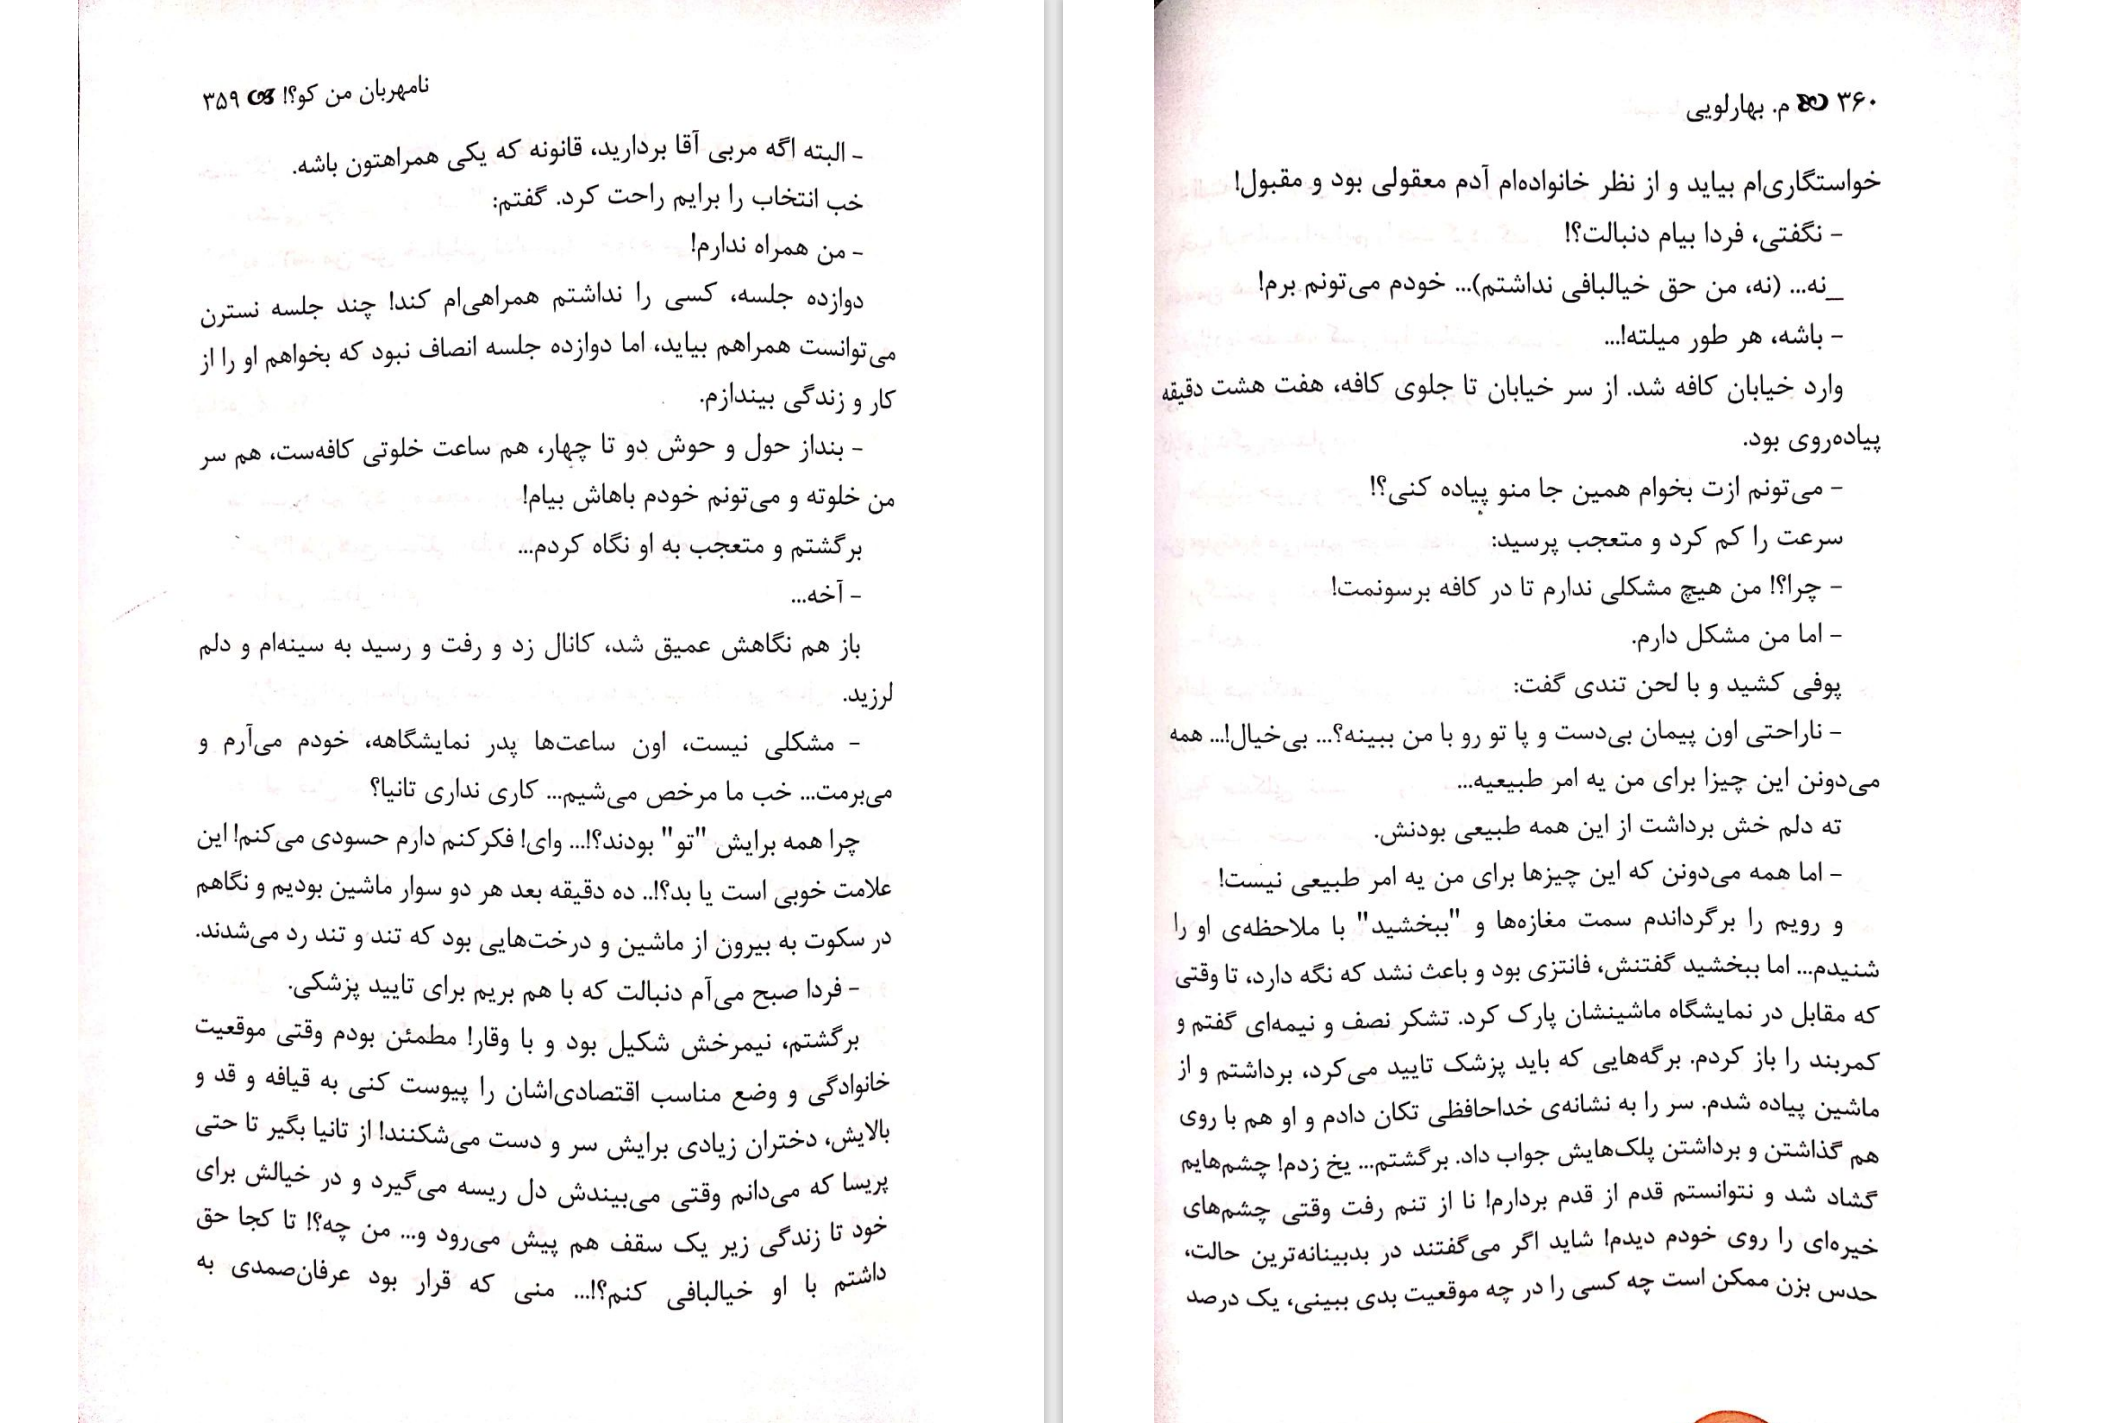 نامهربان من کو؟! ۳۵۹
- البته اگه مربی آقا بردارید، قانونه که یکی همراهتون باشه.
خب انتخاب را برایم راحت کرد. گفتم:
- من همراه ندارم!
دوازده جلسه، کسی را نداشتم همراهی‌ام کند! چند جلسه نسترن
می‌توانست همراهم بیاید، اما دوازده جلسه انصاف نبود که بخواهم او را از
کار و زندگی بیندازم.
- بنداز حول و حوش دو تا چهار، هم ساعت خلوتی کافه‌ست، هم سر
من خلوته و می‌تونم خودم باهاش بیام!
برگشتم و متعجب به او نگاه کردم...
- آخه...
باز هم نگاهش عمیق شد، کانال زد و رفت و رسید به سینه‌ام و دلم
لرزید.
- مشکلی نیست، اون ساعت‌ها پدر نمایشگاهه، خودم می‌آرم و
می‌برمت... خب ما مرخص می‌شیم... کاری نداری تانیا؟
چرا همه برایش "تو" بودند؟!... وای! فکر کنم دارم حسودی می‌کنم! این
علامت خوبی است یا بد؟!.. ده دقیقه بعد هر دو سوار ماشین بودیم و نگاهم
در سکوت به بیرون از ماشین و درخت‌هایی بود که تند و تند رد می‌شدند.
- فردا صبح می‌آم دنبالت که با هم بریم برای تایید پزشکی.
برگشتم، نیمرخش شکیل بود و با وقار! مطمئن بودم وقتی موقعیت
خانوادگی و وضع مناسب اقتصادی‌اشان را پیوست کنی به قیافه و قد و
بالایش، دختران زیادی برایش سر و دست می‌شکنند! از تانیا بگیر تا حتی
پریسا که می‌دانم وقتی می‌بیندش دل ریسه می‌گیرد و در خیالش برای
خود تا زندگی زیر یک سقف هم پیش می‌رود و... من چه؟! تا کجا حق
داشتم با او خیالبافی کنم؟!... منی که قرار بود عرفان‌صمدی به
۳۶۰ م. بهارلویی
خواستگاری‌ام بیاید و از نظر خانواده‌ام آدم معقولی بود و مقبول!
- نگفتی، فردا بیام دنبالت؟!
_نه... (نه، من حق خیالبافی نداشتم)... خودم می‌تونم برم!
- باشه، هر طور میلته!...
وارد خیابان کافه شد. از سر خیابان تا جلوی کافه، هفت هشت دقیقه
پیاده‌روی بود.
- می‌تونم ازت بخوام همین جا منو پیاده کنی؟!
سرعت را کم کرد و متعجب پرسید:
- چرا؟! من هیچ مشکلی ندارم تا در کافه برسونمت!
- اما من مشکل دارم.
پوفی کشید و با لحن تندی گفت:
- ناراحتی اون پیمان بی‌دست و پا تو رو با من ببینه؟... بی‌خیال!... همه
می‌دونن این چیزا برای من یه امر طبیعیه...
ته دلم خش برداشت از این همه طبیعی بودنش.
- اما همه می‌دونن که این چیزها برای من یه امر طبیعی نیست!
و رویم را برگرداندم سمت مغازه‌ها و "ببخشید" با ملاحظه‌ی او را
شنیدم... اما ببخشید گفتنش، فانتزی بود و باعث نشد که نگه دارد، تا وقتی
که مقابل در نمایشگاه ماشینشان پارک کرد. تشکر نصف و نیمه‌ای گفتم و
کمربند را باز کردم. برگه‌هایی که باید پزشک تایید می‌کرد، برداشتم و از
ماشین پیاده شدم. سر را به نشانه‌ی خداحافظی تکان دادم و او هم با روی
هم گذاشتن و برداشتن پلک‌هایش جواب داد. برگشتم... یخ زدم! چشم‌هایم
گشاد شد و نتوانستم قدم از قدم بردارم! نا از تنم رفت وقتی چشم‌های
خیره‌ای را روی خودم دیدم! شاید اگر می‌گفتند در بدبینانه‌ترین حالت،
حدس بزن ممکن است چه کسی را در چه موقعیت بدی ببینی، یک درصد